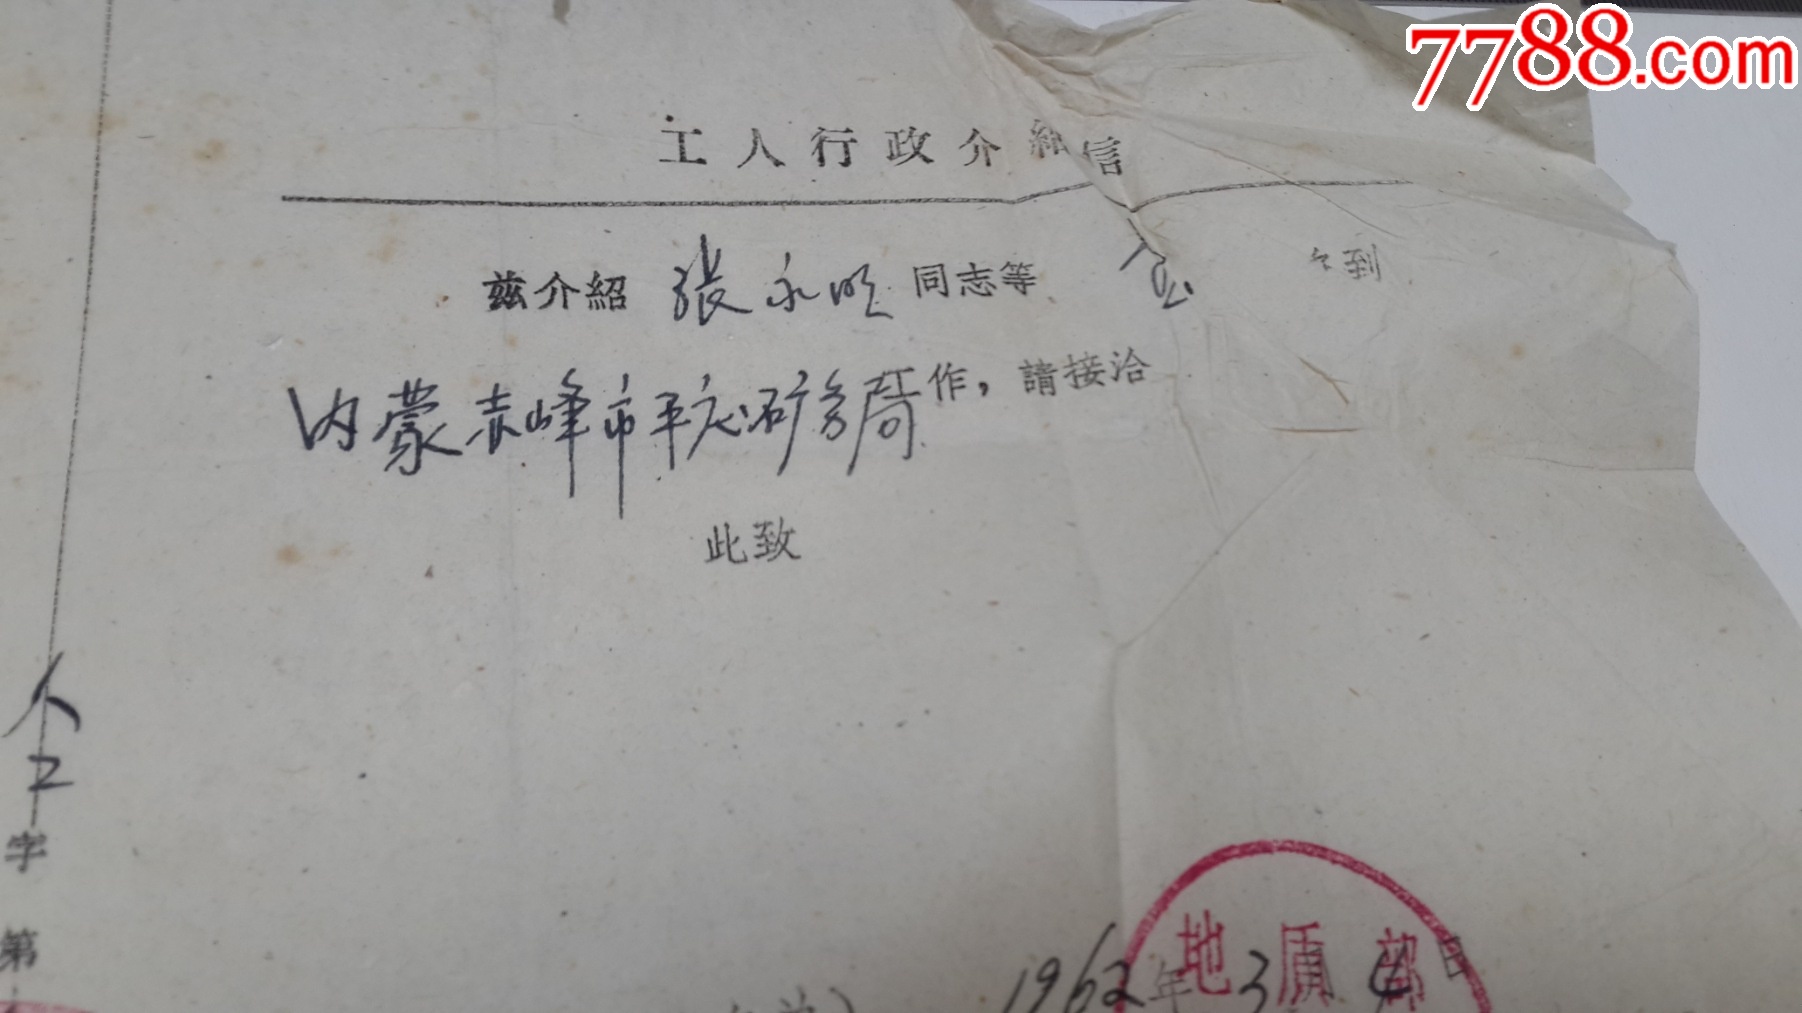 7788.com
工人行政介紹信
茲介紹 張永明 同志等 壹 人到
内蒙赤峰市平庄矿务局 工作，請接洽
此致
人工字第
地质部
1962年3月4日